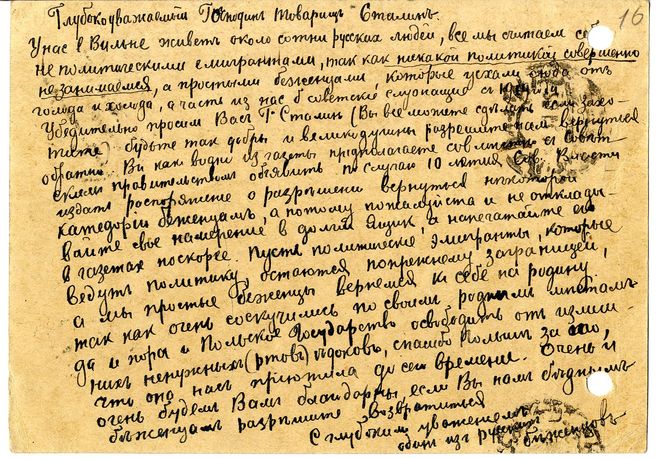 16
Глубокоуважаемый Господинъ Товарищъ Сталинъ.
У насъ в Вильне живетъ около сотни русскихъ людей, все мы считаем себя
не политическими емигрантами, так какъ никакой политикой совершенно
не занимаемся, а простыми беженцами которые уехали сюда отъ
голода и холода, а часть из нас б. советские служащие с
Убедительно просим Васъ Г. Сталин (Вы все можете сделать если захо-
тите) будьте так добры и великодушны разрешите нам вернуться
обратно. Вы как водно из газеты предполагаете совместно съ Совет-
скимъ правительством объявить по случаю 10 летия Сов. Власти
издать распоряжение о разрешении вернуться некоторой
категории беженцамъ, а потому пожалуйста и не отклады-
вайте свое намерение в долгий ящик, и напечатайте его
в газетах поскорее. Пусть политические эмигранты, которые
ведутъ политику, остаются попрежнему заграницей,
а мы простые беженцы вернемся к себе на родину,
так как очень соскучились по своим родным местамъ
да и пора и Польское Государство освободить от излиш-
нихъ ненужныхъ (ртовъ) едоковъ, спасибо Польши за то,
что она насъ приютила до сего времени. Очень и
очень будем Вамъ благодарны, если Вы нам беднымъ
беженцамъ разрешите возвратиться
С глубоким уважением
один из русскихъ беженцовъ